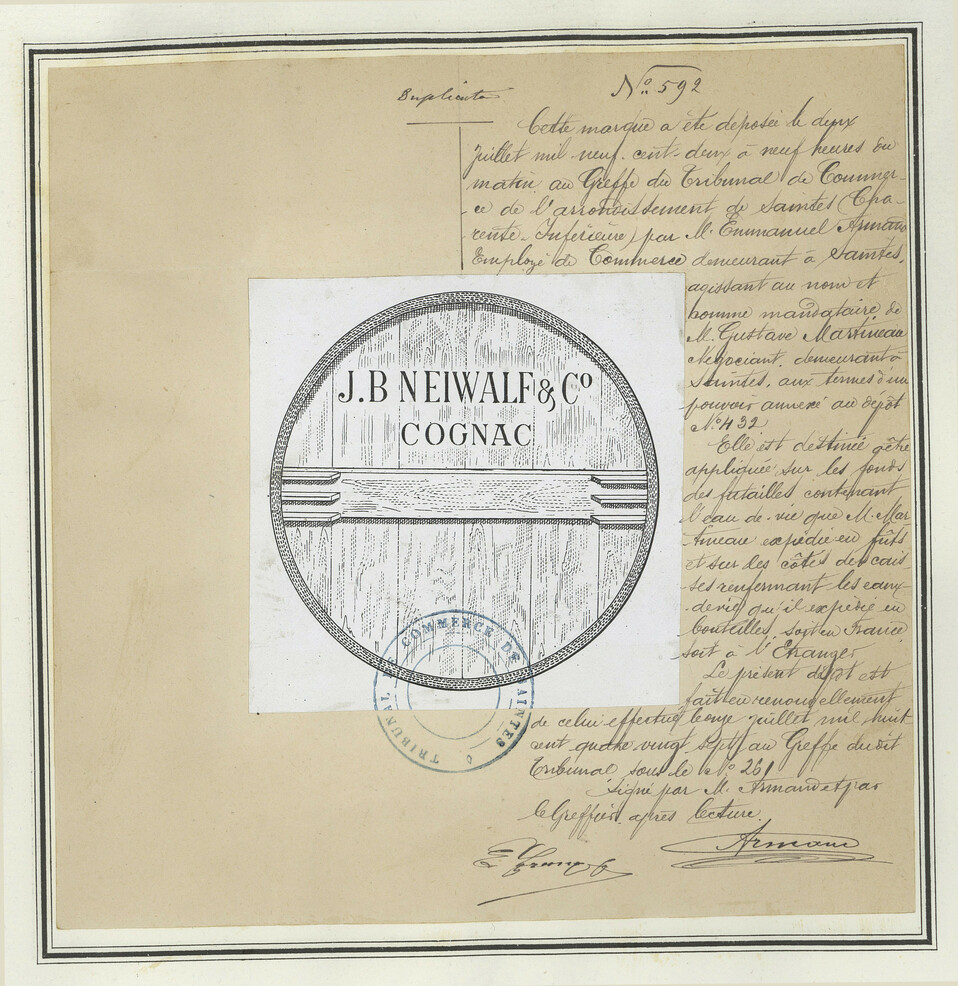 Duplicata
No. 592
Cette marque a été déposée le deux
Juillet mil neuf cent-deux à neuf heures du
matin au Greffe du Tribunal de Commer-
-ce de l'arrondissement de Saintes (Cha-
rente-Inférieure) par M. Emmanuel Armand
Employé de Commerce demeurant à Saintes,
agissant au nom et
comme mandataire de
M. Gustave Martineau
Négociant, demeurant à
Saintes, aux termes d'un
pouvoir annexé au dépôt
No. 432
Elle est destinée à être
appliquée sur les fonds
des futailles contenant
l'eau-de-vie que M. Mar
-tineau expédie en fûts
et sur les côtés des cais
ses renfermant les eaux-
-de-vie qu'il expédie en
bouteilles, soit en France
soit à l'Etranger
Le présent dépôt est
fait en renouvellement
de celui effectué le onze juillet mil huit
cent quatre vingt sept au Greffe du dit
Tribunal sous le No. 261
Signé par M. Armand et par
le Greffier après lecture.
Armand
J.B NEIWALF & Co
COGNAC
TRIBUNAL DE COMMERCE DE SAINTES